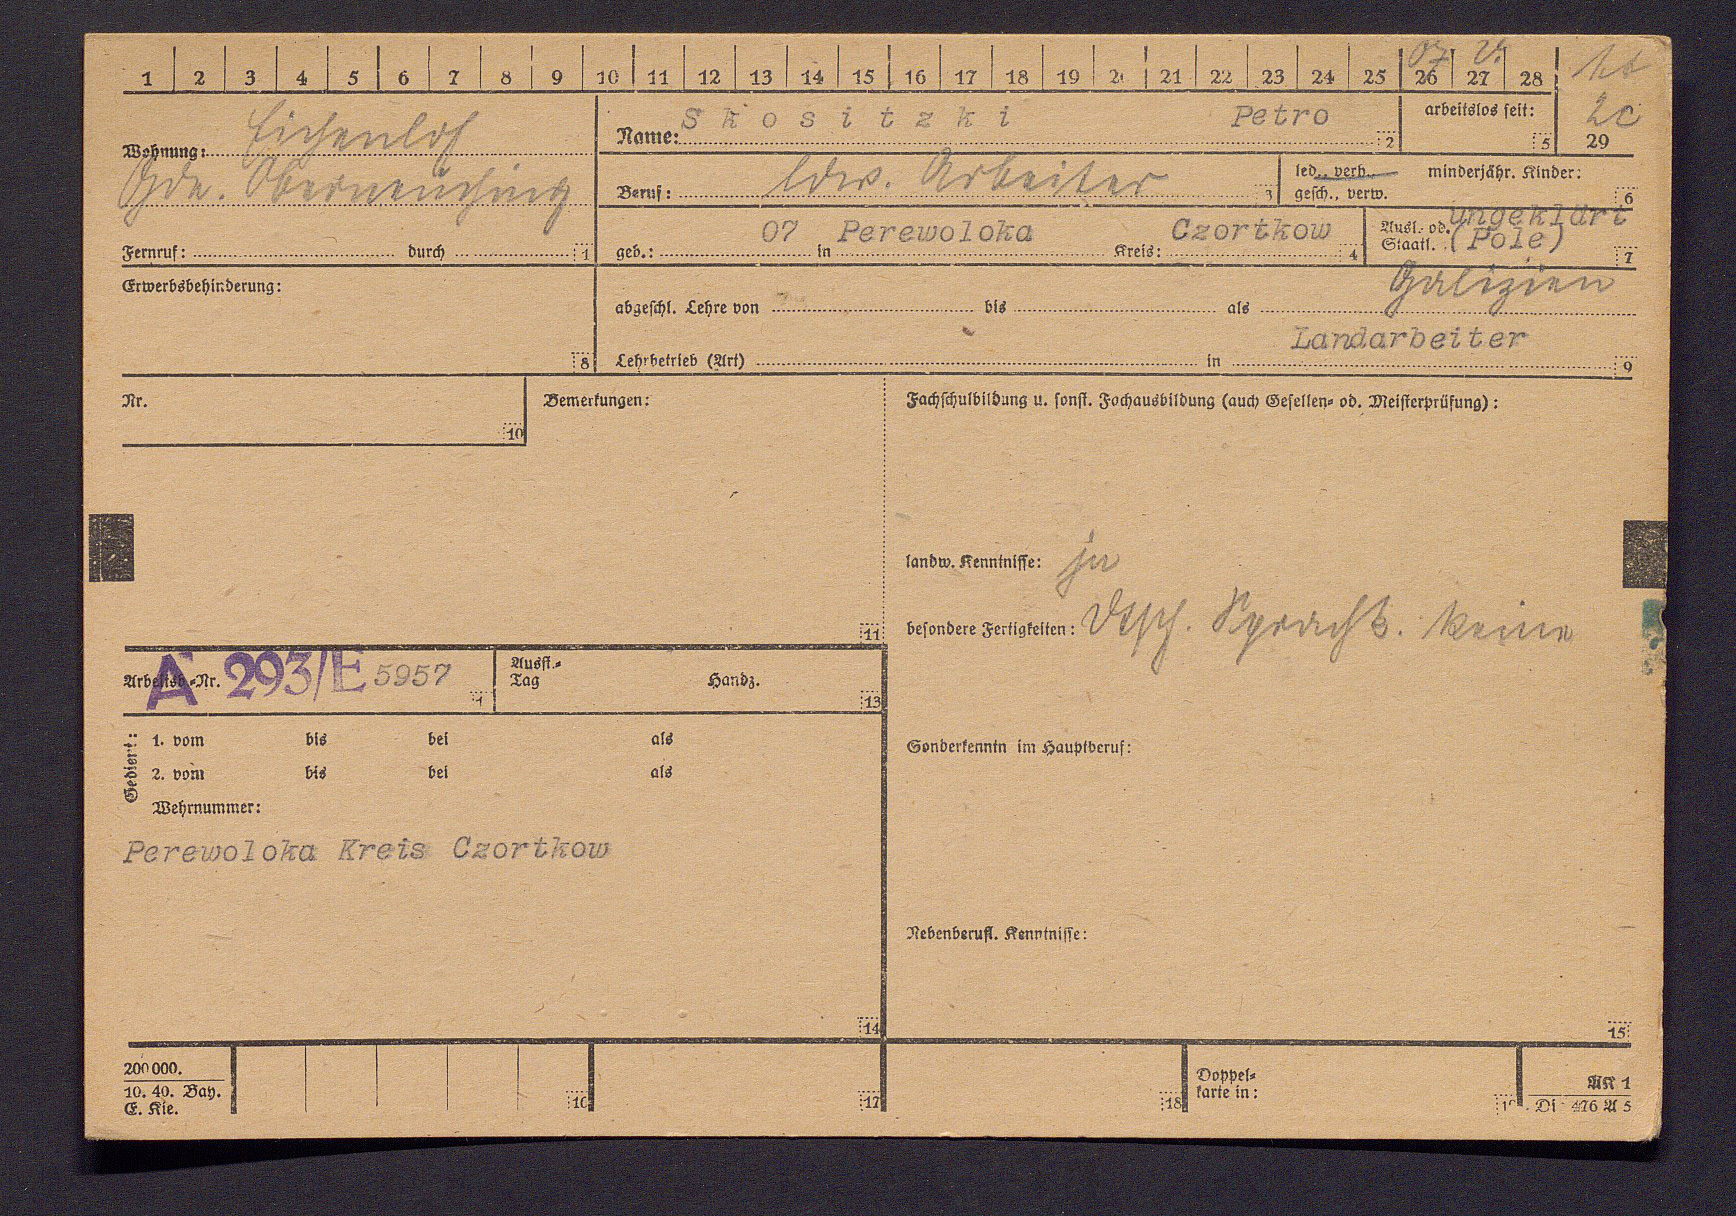 1 2 3 4 5 6 7 8 9 10 11 12 13 14 15 16 17 18 19 20 21 22 23 24 25 26 27 28
07 V.
2c
29
Wohnung: Eichenlof
Gde. Oberneuching
Fernruf: durch 1
Name: Skositzki Petro 2
arbeitslos seit: 5
Beruf: ldw. Arbeiter 3
led., verh., minderjähr. Kinder:
gesch., verw. 6
geb.: 07 in Perewoloka Kreis: Czortkow 4
Ausl. od. ungeklärt
Staatl. (Pole) 7
Galizien
Erwerbsbehinderung: 8
abgeschl. Lehre von bis als
Landarbeiter
Lehrbetrieb (Art) in 9
Nr. 10
Bemerkungen: 11
Fachschulbildung u. sonst. Fachausbildung (auch Gesellen- od. Meisterprüfung):
landw. Kenntnisse: ja
besondere Fertigkeiten: Dtsch. Sprachk. keine
Arbeitsb.-Nr. A 293/E 5957
Ausst.-
Tag Handz. 13
Gedient:
1. vom bis bei als
2. vom bis bei als
Wehrnummer:
Perewoloka Kreis Czortkow
14
Sonderkenntn im Hauptberuf:
Nebenberufl. Kenntnisse:
15
200 000.
10. 40. Bay.
E. Kie.
16 17 18
Doppel-
karte in:
AK 1
Di 476 A 5